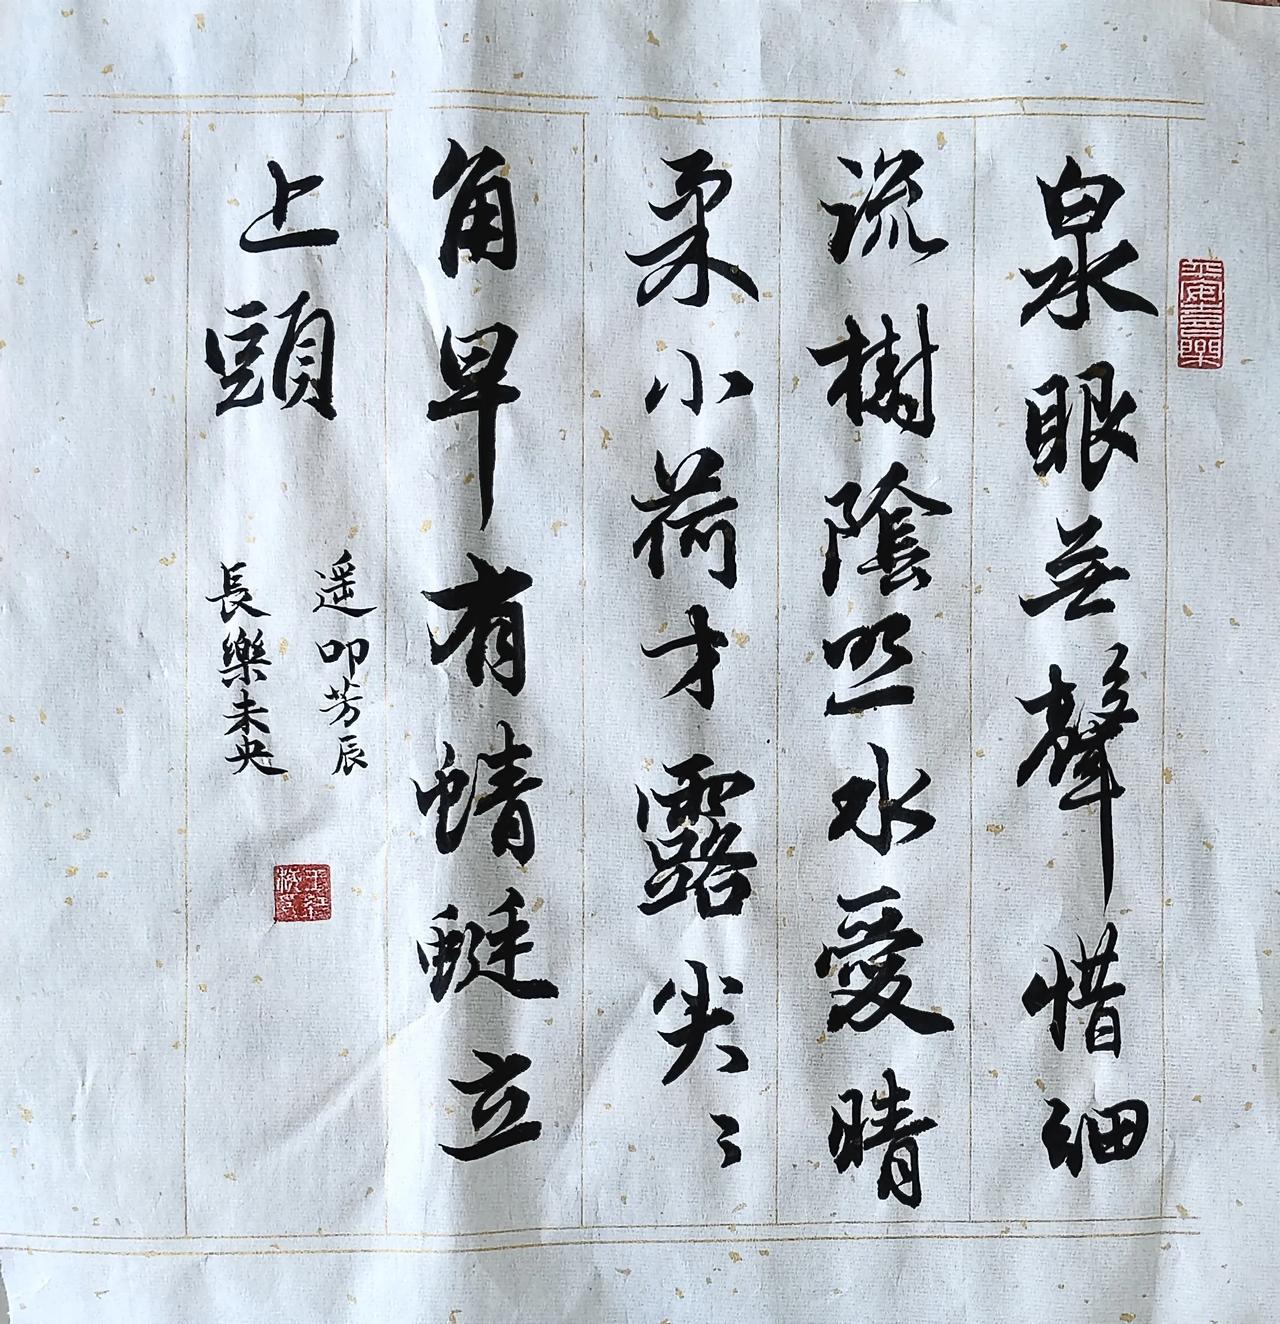 平安喜樂
泉眼無聲惜細
流樹陰照水愛晴
柔小荷才露尖〻
角早有蜻蜓立
上頭
遥叩芳辰
長樂未央